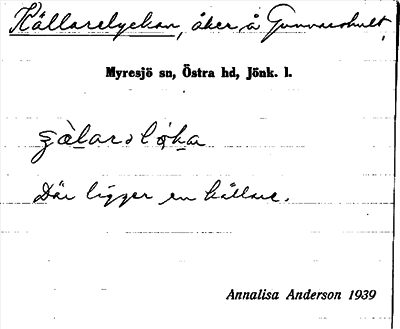 Källarelyckan, åker å Gunnarshult,
Myresjö sn, Östra hd, Jönk. l.
Där ligger en källare.
Annalisa Anderson 1939